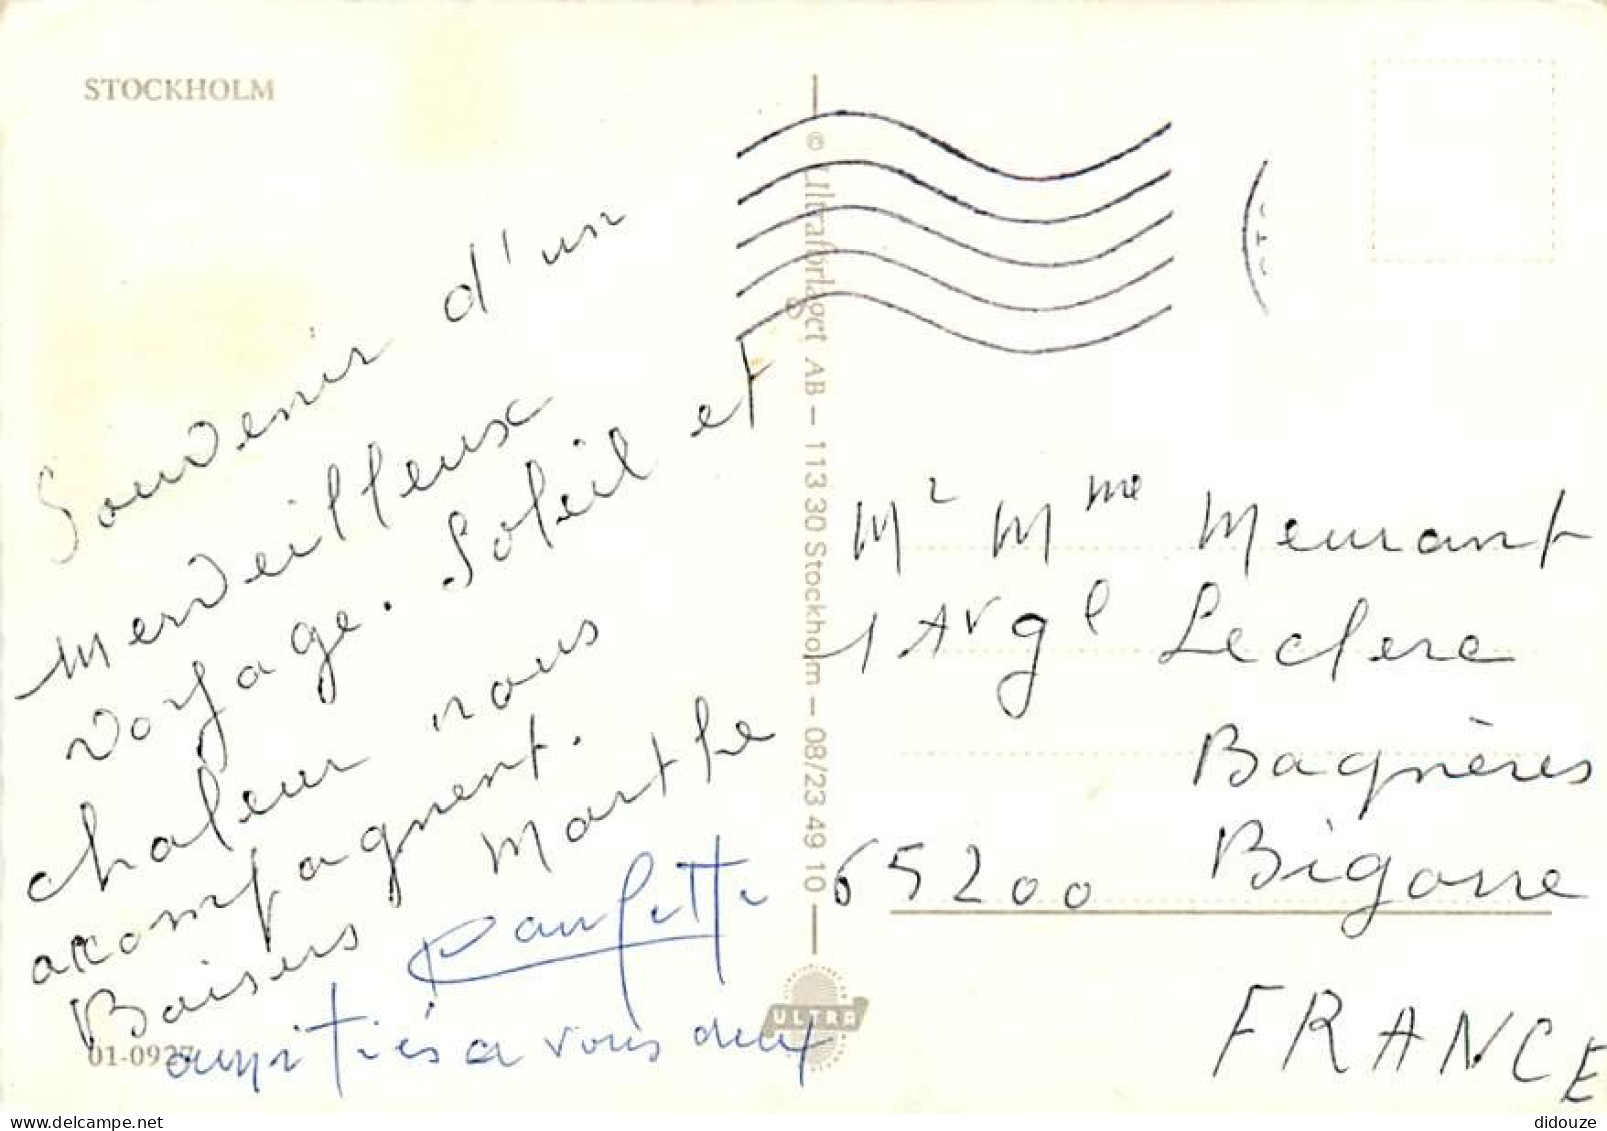 STOCKHOLM
Souvenir d'un
merveilleux
voyage. Soleil et
chaleur nous
accompagnent.
Baisers Marthe
amitiés a vous deux
01-0927
© Ultraförlaget AB – 113 30 Stockholm – 08/23 49 10
ULTRA
Mr Mme Meurant
1 Av gl Leclerc
Bagnères
65200 Bigorre
FRANCE
didouze